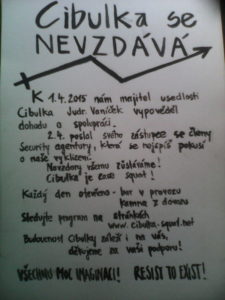 Cibulka se
NEVZDÁVÁ
K 1.4. 2015 nám majitel usedlosti
Cibulka Judr. Vaníček vypověděl
dohodu o spolupráci.
2.4. poslal svého zástupce se členy
Security agentury, která se nejspíš pokusí
o naše vyklizení.
Navzdory všemu zůstáváme!
Cibulka je squat!
Každý den otevřeno - bar v provozu
Sledujte program na stránkách
www.cibulka-squat.net
Budoucnost Cibulky záleží i na vás,
děkujeme za vaši podporu!
VŠECHNU MOC IMAGINACI! RESIST TO EXIST!